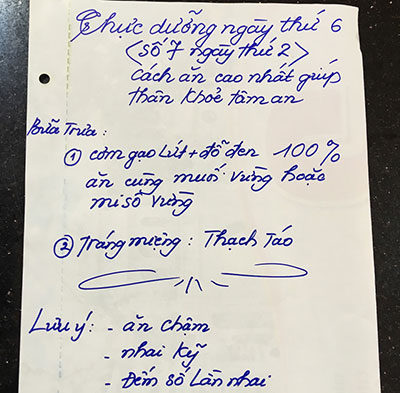 Thực dưỡng ngày thứ 6
<số 7 ngày thứ 2>
Cách ăn cao nhất giúp
thân khoẻ tâm an
Bữa Trưa:
① cơm gạo Lứt + đỗ đen 100%
ăn cùng muối vừng hoặc
mi sô vừng
② Tráng miệng: Thạch Táo
Lưu ý: - ăn chậm
- nhai kỹ
- Đếm số Lần nhai